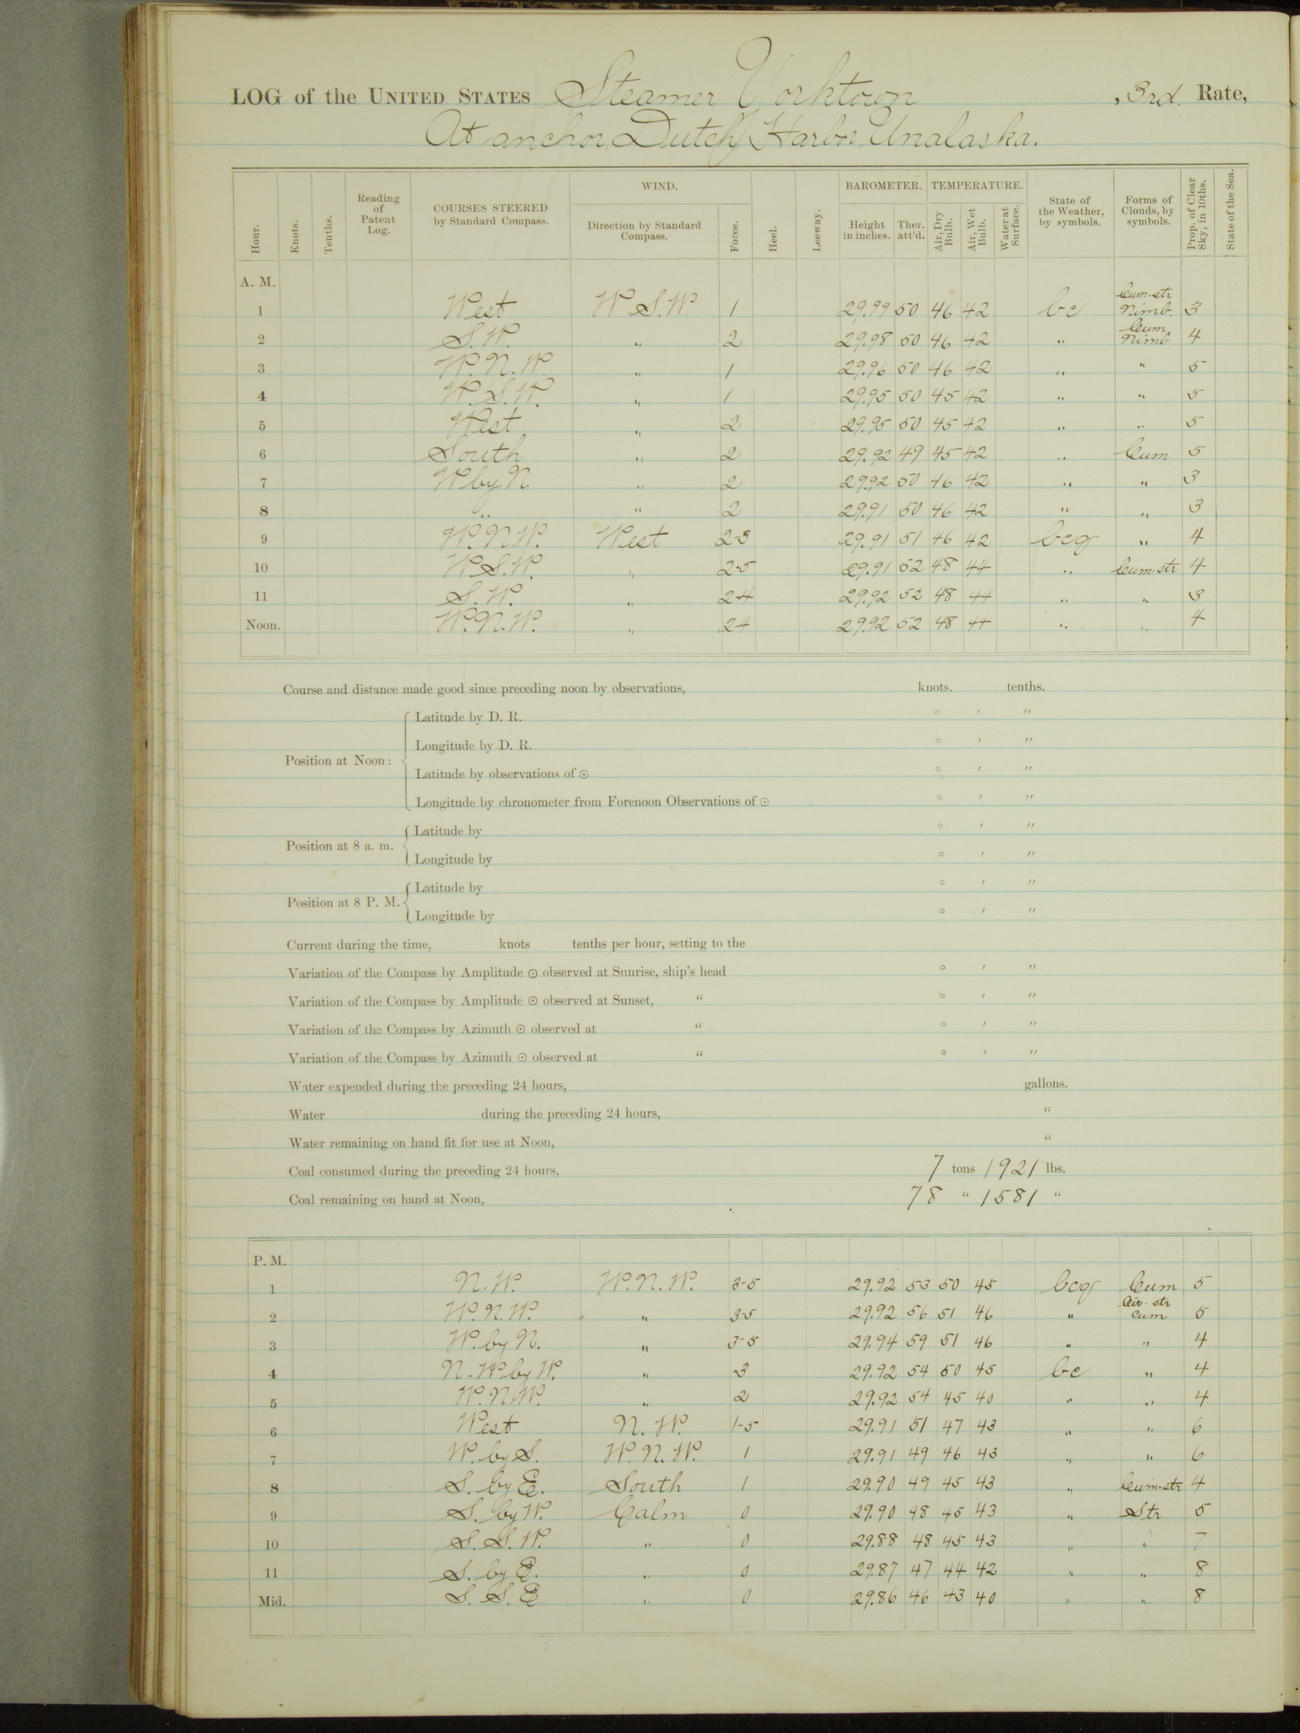 LOG of the UNITED STATES Steamer Yorktown , 3rd. Rate,
At anchor, Dutch Harbor, Unalaska.
Hour. Knots. Tenths. Reading of Patent Log. COURSES STEERED by Standard Compass. WIND. Direction by Standard Compass. Force. Heel. Leeway. BAROMETER. Height in inches. Ther. att'd. TEMPERATURE. Air, Dry Bulb. Air, Wet Bulb. Water at Surface. State of the Weather, by symbols. Forms of Clouds, by symbols. Prop. of Clear Sky, in 10ths. State of the Sea.
A. M.
1 West W.S.W. 1 29.99 50 46 42 bc Cum-str Nimb. 3
2 S.W. " 2 29.98 50 46 42 " Cum Nimb 4
3 W.N.W. " 1 29.96 50 46 42 " " 5
4 W.S.W. " 1 29.95 50 45 42 " " 5
5 West " 2 29.95 50 45 42 " " 5
6 South " 2 29.92 49 45 42 " Cum 5
7 W by N " 2 29.92 50 46 42 " " 3
8 " " 2 29.91 50 46 42 " " 3
9 W.N.W. West 2-3 29.91 51 46 42 bcq " 4
10 W.S.W. " 2-5 29.91 52 48 44 " Cum-str 4
11 S.W. " 2-4 29.92 52 48 44 " " 3
Noon. W.N.W. " 2-4 29.92 52 48 44 " " 4
Course and distance made good since preceding noon by observations, knots. tenths.
Position at Noon: Latitude by D. R. ° ' "
Longitude by D. R. ° ' "
Latitude by observations of ☉ ° ' "
Longitude by chronometer from Forenoon Observations of ☉ ° ' "
Position at 8 a. m. Latitude by ° ' "
Longitude by ° ' "
Position at 8 P. M. Latitude by ° ' "
Longitude by ° ' "
Current during the time, knots tenths per hour, setting to the
Variation of the Compass by Amplitude ☉ observed at Sunrise, ship's head ° ' "
Variation of the Compass by Amplitude ☉ observed at Sunset, " ° ' "
Variation of the Compass by Azimuth ☉ observed at " ° ' "
Variation of the Compass by Azimuth ☉ observed at " ° ' "
Water expended during the preceding 24 hours, gallons.
Water during the preceding 24 hours, "
Water remaining on hand fit for use at Noon, "
Coal consumed during the preceding 24 hours, 7 tons 1921 lbs.
Coal remaining on hand at Noon, 78 " 1581 "
P. M.
1 N.W. W.N.W. 3-5 29.92 53 50 45 bcq Cum 5
2 W.N.W. " 3-5 29.92 56 51 46 " Cir-str cum 5
3 W. by N. " 3-5 29.94 59 51 46 " " 4
4 N.W. by W. " 3 29.92 54 50 45 bc " 4
5 W.N.W. " 2 29.92 54 45 40 " " 4
6 West N.W. 1-5 29.91 51 47 43 " " 6
7 W. by S. W.N.W. 1 29.91 49 46 43 " " 6
8 S. by E. South 1 29.90 49 45 43 " Cum-str 4
9 S. by W. Calm 0 29.90 48 45 43 " Str 5
10 S.S.W. " 0 29.88 48 45 43 " " 7
11 S. by E. " 0 29.87 47 44 42 " " 8
Mid. S.S.E " 0 29.86 46 43 40 " " 8